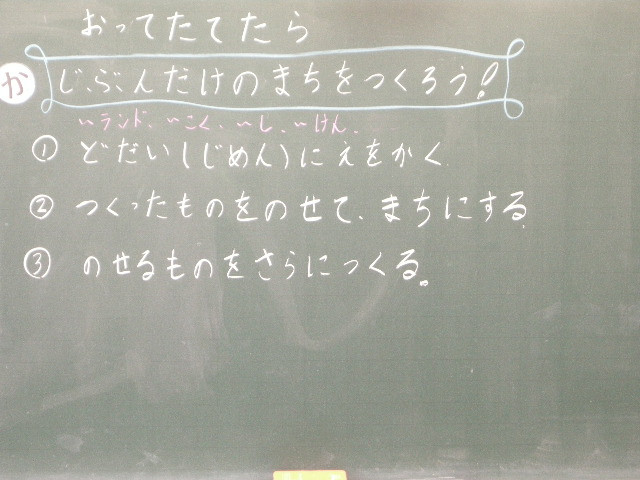 おってたてたら
か じぶんだけのまちをつくろう!
〜ランド、〜こく、〜し、〜けん、
① どだい(じめん)にえをかく
② つくったものをのせて、まちにする
③ のせるものをさらにつくる。